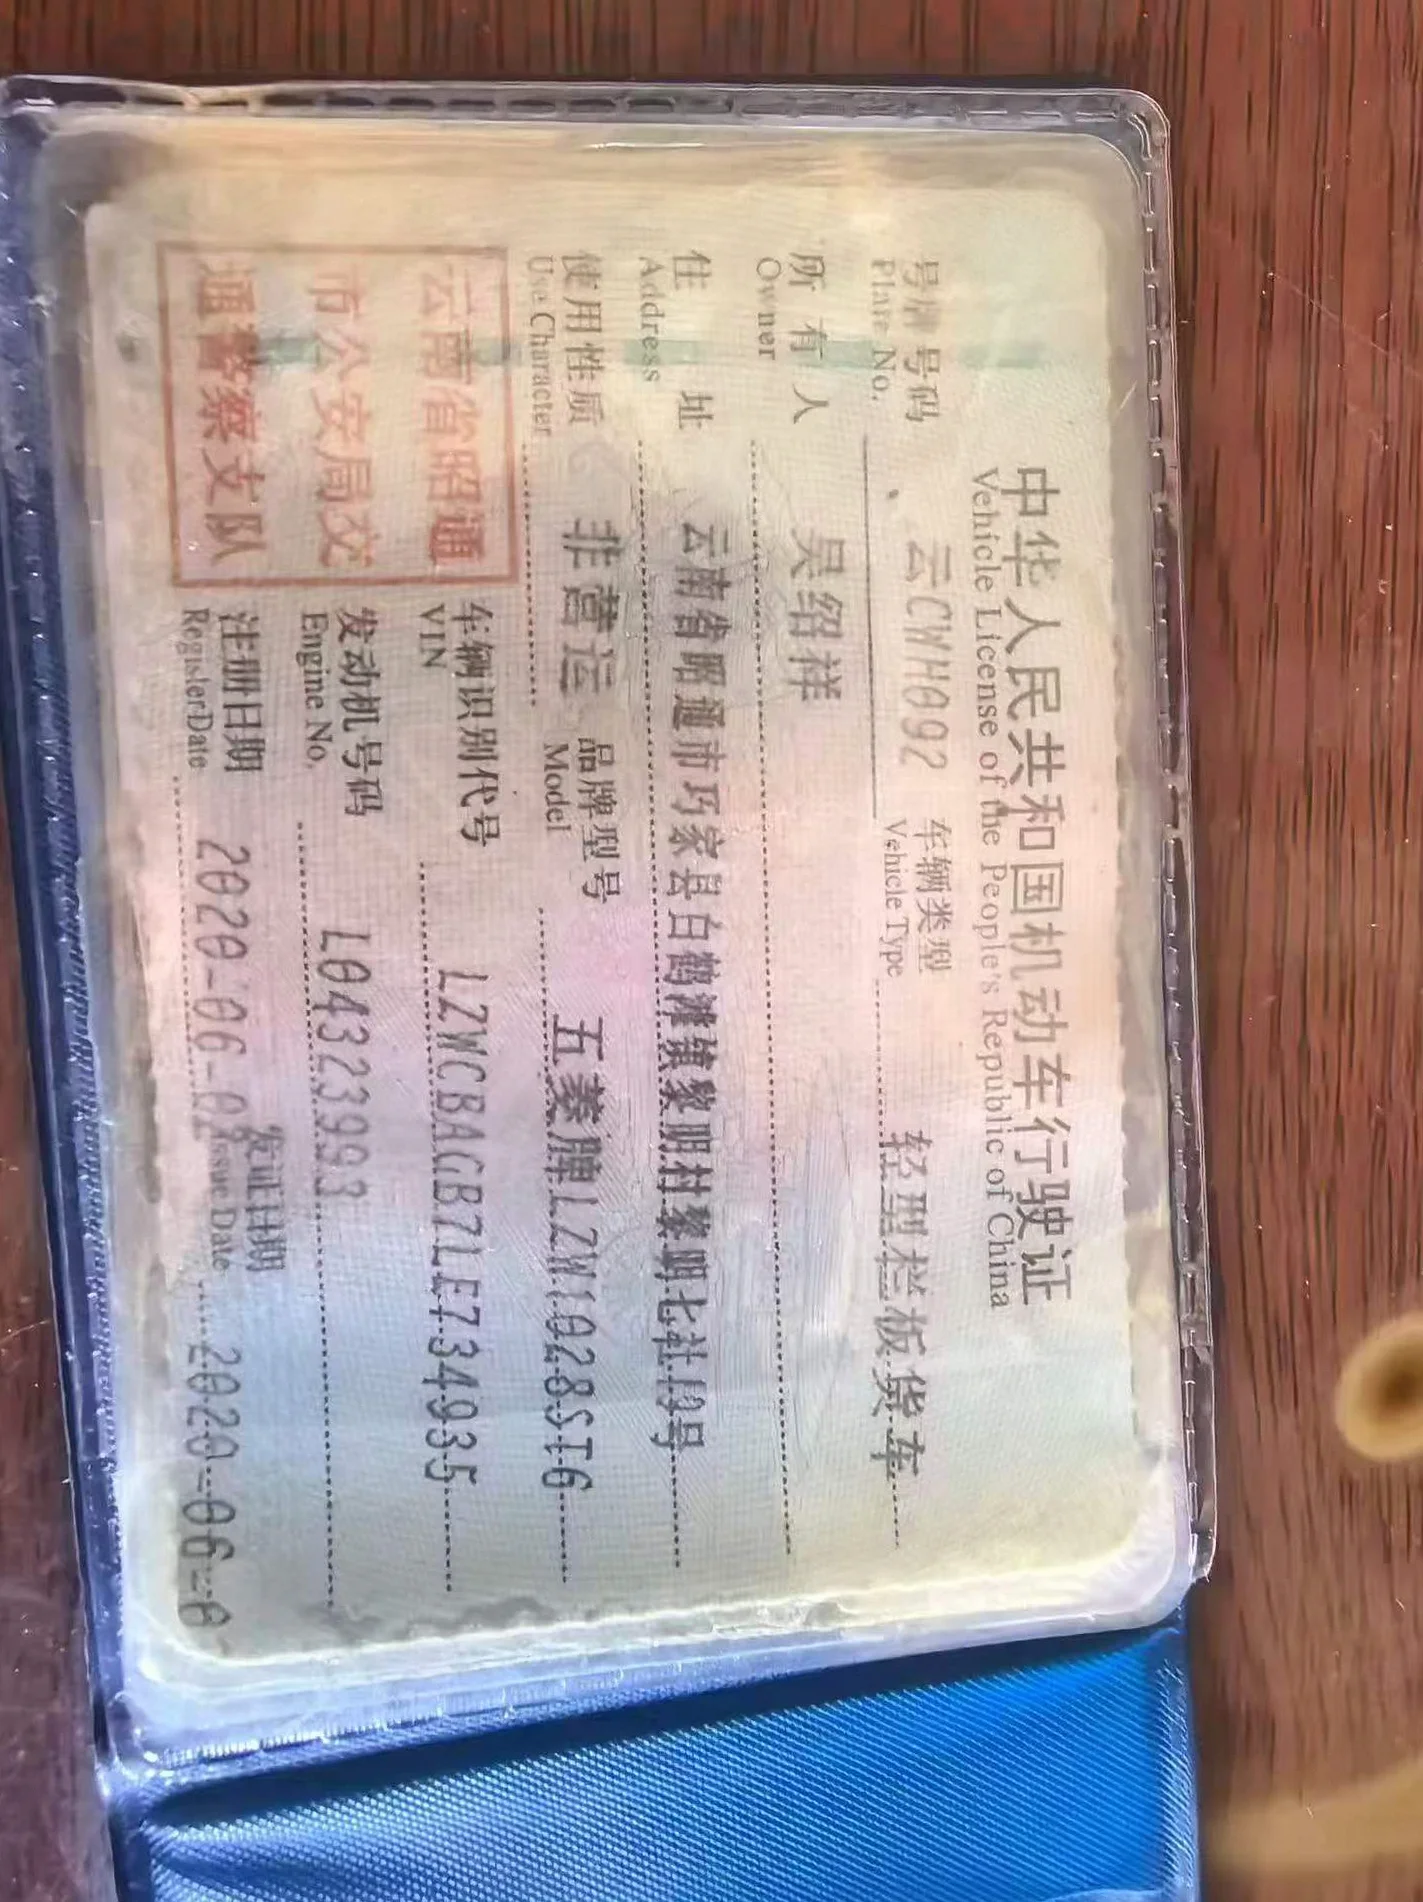 中华人民共和国机动车行驶证
Vehicle License of the People's Republic of China
号牌号码 云CWH092 车辆类型 轻型栏板货车
Plate No. Vehicle Type
所有人 吴绍祥
Owner
住址 云南省昭通市巧家县白鹤滩镇黎明村黎明七社19号
Address
使用性质 非营运 品牌型号 五菱牌LZW1028STG
Use Character Model
云南省昭通
市公安局交
通警察支队
车辆识别代号 LZWCBAGB7LE734935
VIN
发动机号码 L04323993
Engine No.
注册日期 2020-06- 发证日期 2020-06-
Register Date Issue Date